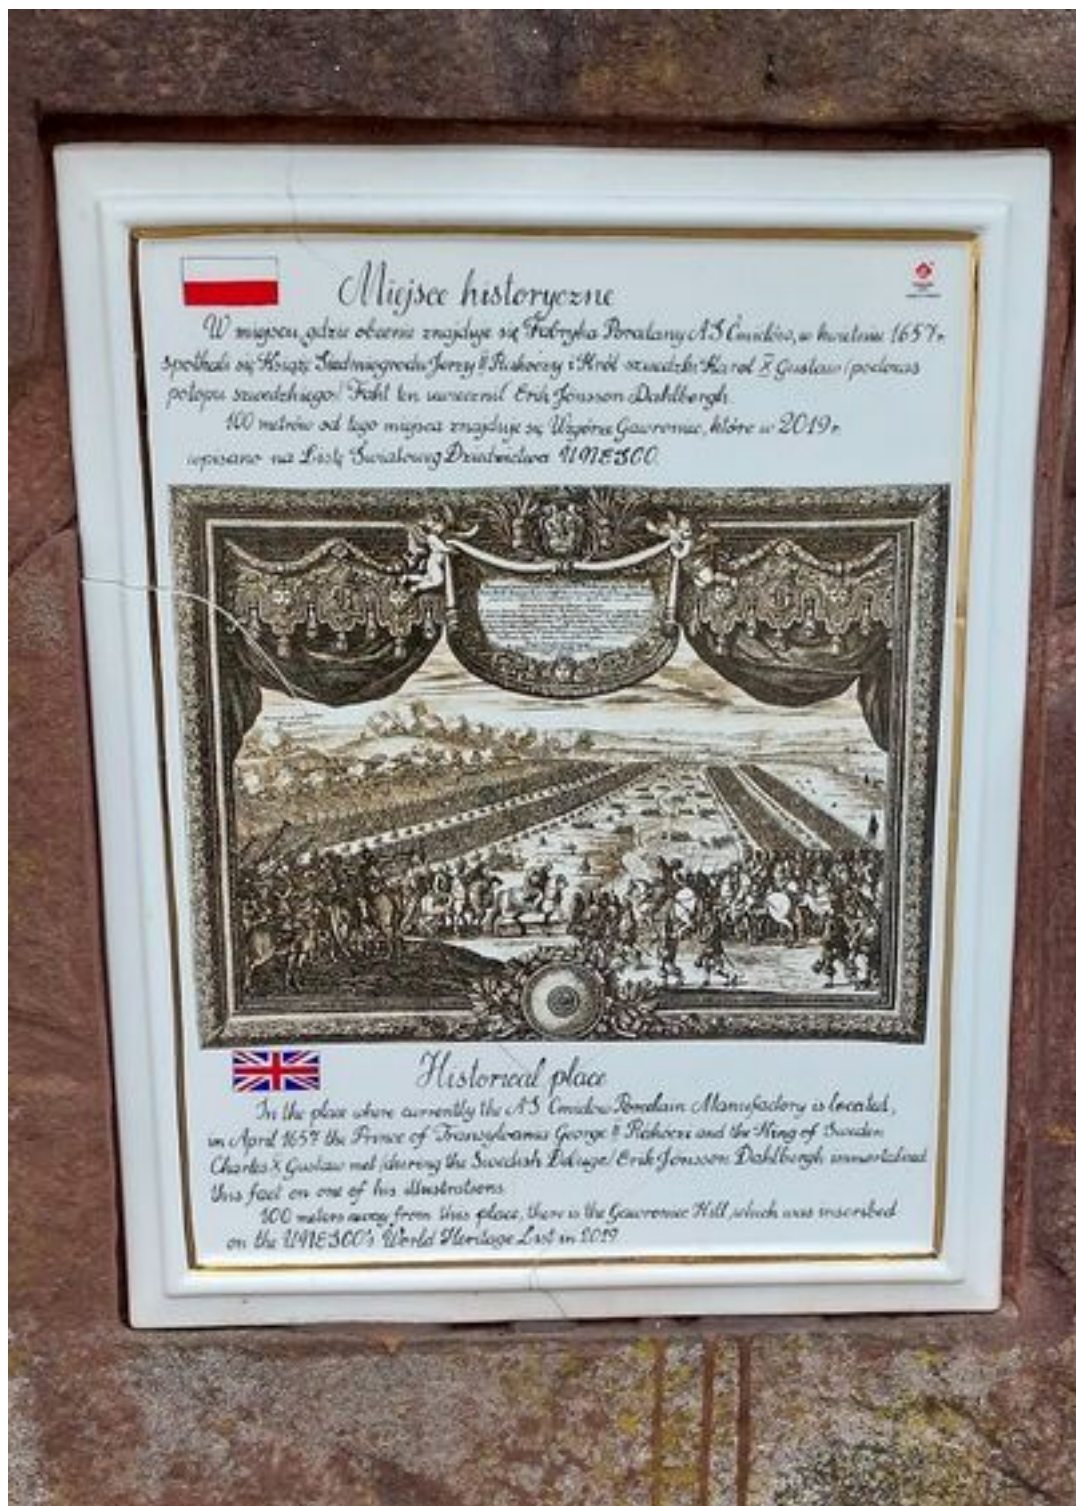 Miejsce historyczne
W miejscu, gdzie obecnie znajduje się Fabryka Porcelany AS Ćmielów, w kwietniu 1657 r.
spotkali się Książę Siedmiogrodu Jerzy II Rakoczy i Król szwedzki Karol X Gustaw /podczas
potopu szwedzkiego/. Fakt ten uwiecznił Erik Jönsson Dahlbergh.
100 metrów od tego miejsca znajduje się Wzgórze Gawroniec, które w 2019 r.
wpisano na Listę Światowego Dziedzictwa UNESCO.
Historical place
In the place where currently the AS Ćmielów Porcelain Manufactory is located,
in April 1657 the Prince of Transylvania George II Rakoczi and the King of Sweden
Charles X Gustaw met /during the Swedish Deluge/. Erik Jönsson Dahlbergh immortalised
this fact on one of his illustrations.
100 meters away from this place, there is the Gawroniec Hill, which was inscribed
on the UNESCO's World Heritage List in 2019